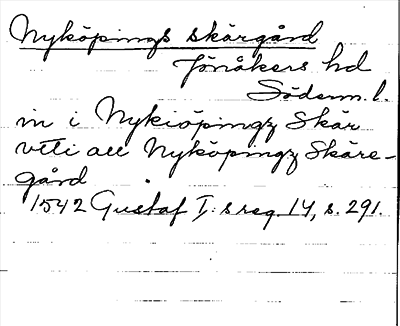 Nyköpings skärgård
Jönåkers hd
Söderm. l.
in i Nykiöpingz Skär
vti all Nyköpingz Skäre-
gård
1542 Gustaf I:s reg. 14, s. 291.